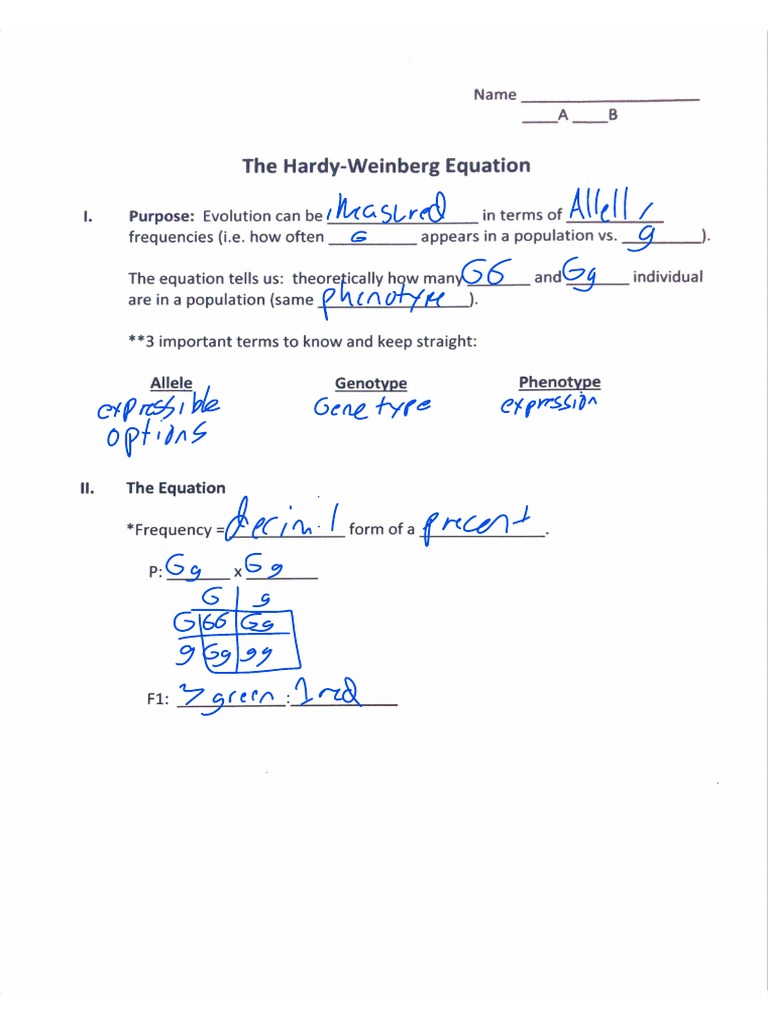 Name ____________________
____A ____B
The Hardy-Weinberg Equation
I. Purpose: Evolution can be measured in terms of Allell
frequencies (i.e. how often G appears in a population vs. g).
The equation tells us: theoretically how many GG and Gg individual
are in a population (same phenotype).
**3 important terms to know and keep straight:
Allele Genotype Phenotype
expressible Gene type expression
options
II. The Equation
*Frequency = form of a precent.
P: Gg x Gg
G g
G GG Gg
g Gg gg
F1: 3 green : 1 red